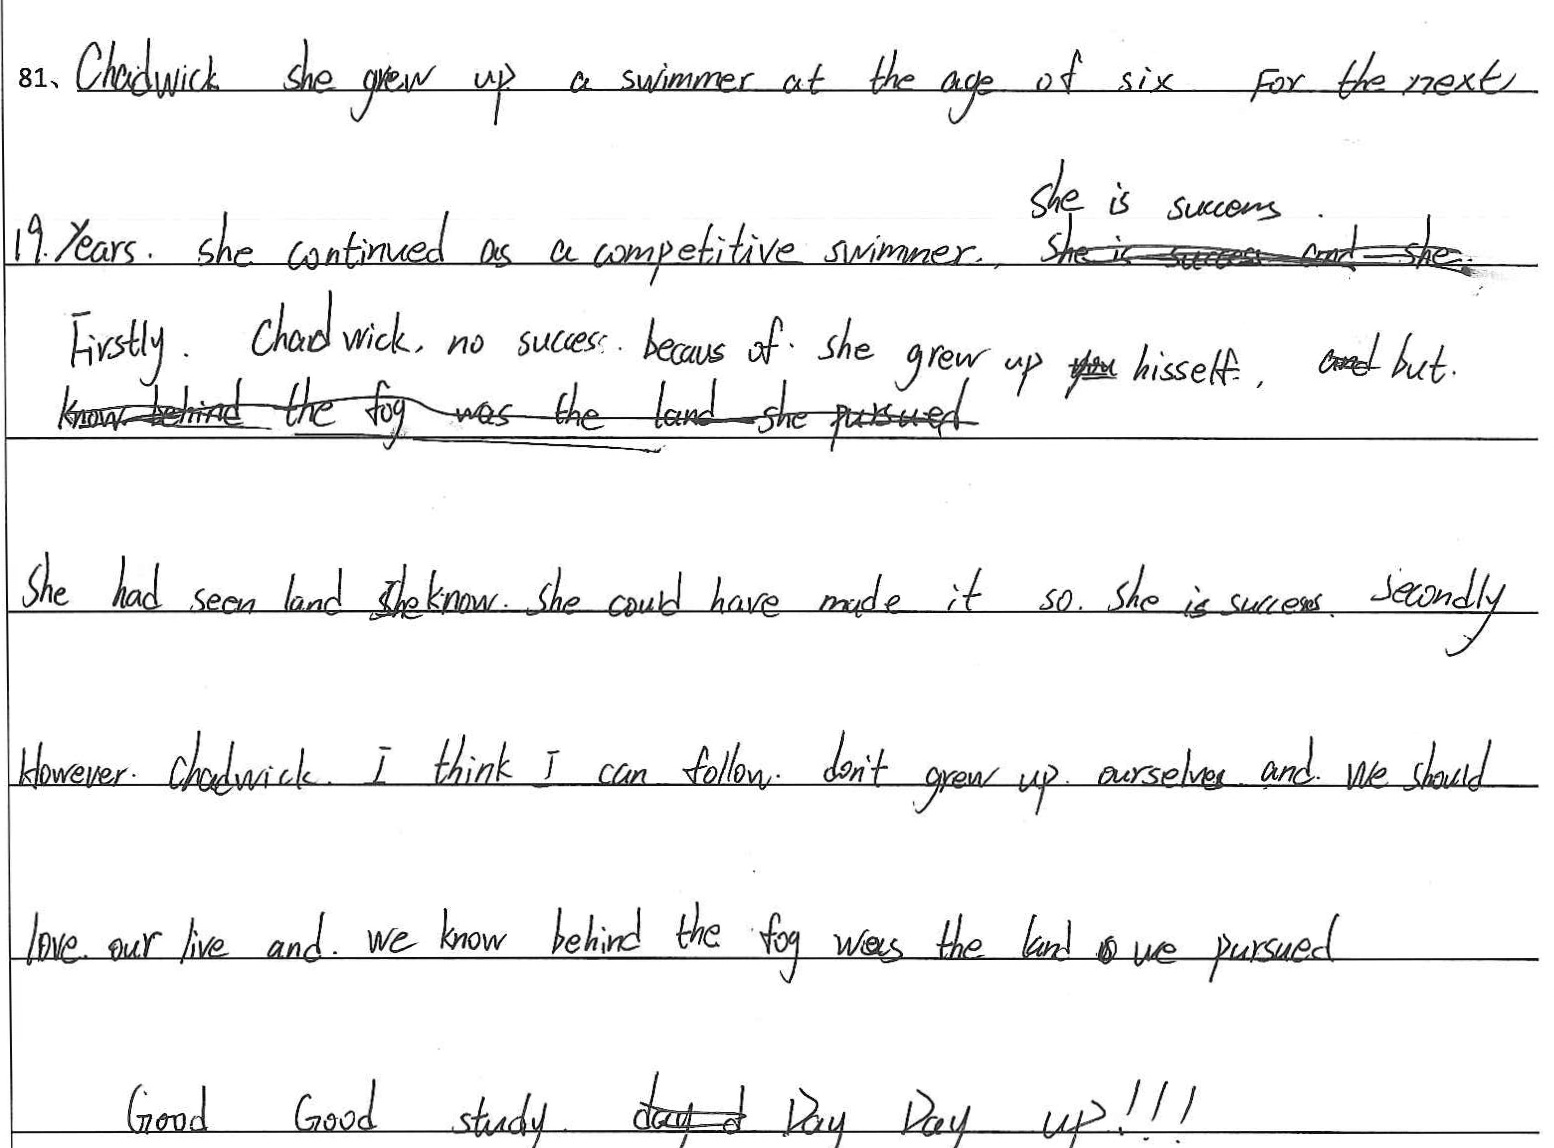 81、Chadwick she grew up a swimmer at the age of six For the next
she is success.
19. Years. she continued as a competitive swimmer., she is success and she.
Firstly. Chadwick. no success. becaus of. she grew up you hisself., and but.
know behind the fog was the land she pursued
She had seen land she know. she could have made it so. she is success. secondly
However. Chadwick. I think I can follow. don't grew up. ourselves and. We should
love. our live and. we know behind the fog was the land we pursued
Good Good study. day d Day Day up!!!